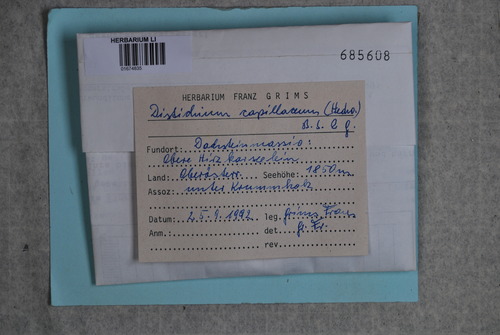 HERBARIUM LI
685608
HERBARIUM FRANZ GRIMS
Distichium capillaceum (Hedw.)
B. S. G.
Fundort: Dachsteinmassiv:
Obere
Land: Oberösterr. Seehöhe: 1850 m
Assoz: unter Krummholz
Datum: 25.9.1992 leg. Grims Franz
Anm.: det. Gr. Fr.
rev.